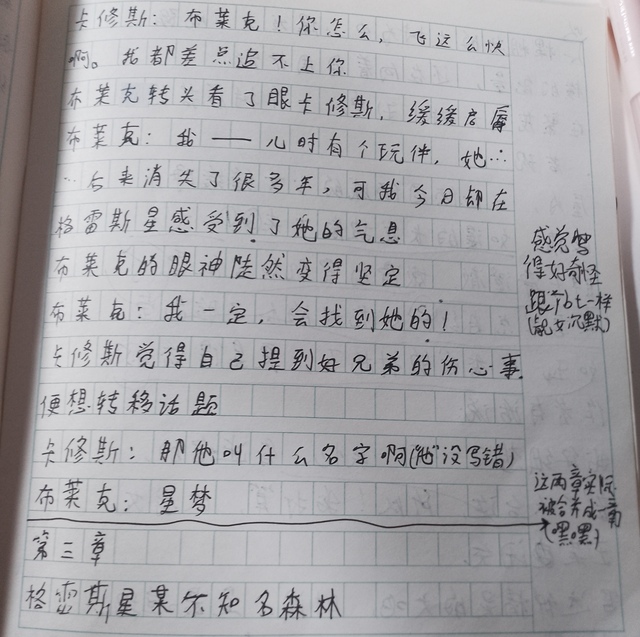 卡修斯：布莱克！你怎么，飞这么快
啊。我都差点追不上你
布莱克转头看了眼卡修斯，缓缓启唇
布莱克：我——儿时有个玩伴，她…
…后来消失了很多年，可我今日却在
格雷斯星感受到了她的气息
布莱克的眼神陡然变得坚定
布莱克：我一定，会找到她的！
卡修斯觉得自己提到好兄弟的伤心事
便想转移话题
卡修斯：那他叫什么名字啊("他"没写错)
布莱克：星梦
第三章
格雷斯星某不知名森林
感觉写
得好奇怪
跟一样
沉默)
这两章实际
被合并成一章
(嘿嘿)